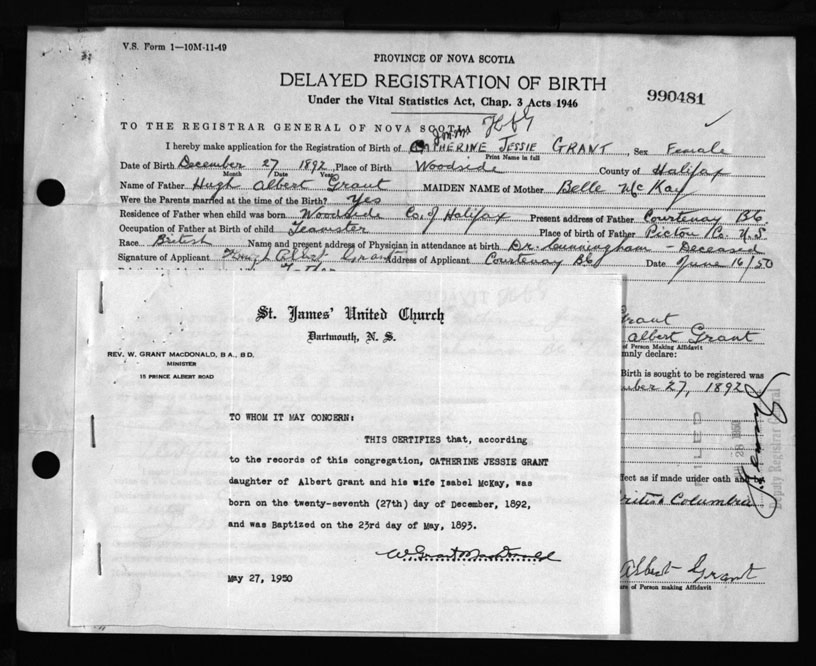 V.S. Form 1—10M-11-49
PROVINCE OF NOVA SCOTIA
DELAYED REGISTRATION OF BIRTH
990481
Under the Vital Statistics Act, Chap. 3 Acts 1946
TO THE REGISTRAR GENERAL OF NOVA SCOTIA
I hereby make application for the Registration of Birth of CATHERINE JESSIE GRANT, Sex Female
Print Name in full
Date of Birth December 27 1892 Place of Birth Woodside County of Halifax
Month Date Year
Name of Father Hugh Albert Grant MAIDEN NAME of Mother Belle McKay
Were the Parents married at the time of the Birth? Yes
Residence of Father when child was born Woodside Co. of Halifax Present address of Father Courtenay B.C.
Occupation of Father at Birth of child Teamster Place of birth of Father Pictou Co. N.S.
Race British Name and present address of Physician in attendance at birth Dr. Cunningham - Deceased
Signature of Applicant Hugh Albert Grant Address of Applicant Courtenay B.C. Date June 16/50
Father
St. James' United Church
Dartmouth, N. S.
REV. W. GRANT MACDONALD, B.A., B.D.
MINISTER
15 PRINCE ALBERT ROAD
TO WHOM IT MAY CONCERN:
THIS CERTIFIES that, according
to the records of this congregation, CATHERINE JESSIE GRANT
daughter of Albert Grant and his wife Isabel McKay, was
born on the twenty-seventh (27th) day of December, 1892,
and was Baptized on the 23rd day of May, 1893.
W Grant MacDonald
May 27, 1950
Grant
Albert Grant
of Person Making Affidavit
mnly declare:
Birth is sought to be registered was
mber 27, 1892
FILED
28 1950
Deputy Registrar General
ffect as if made under oath and
British Columbia
Albert Grant
ure of Person making Affidavit